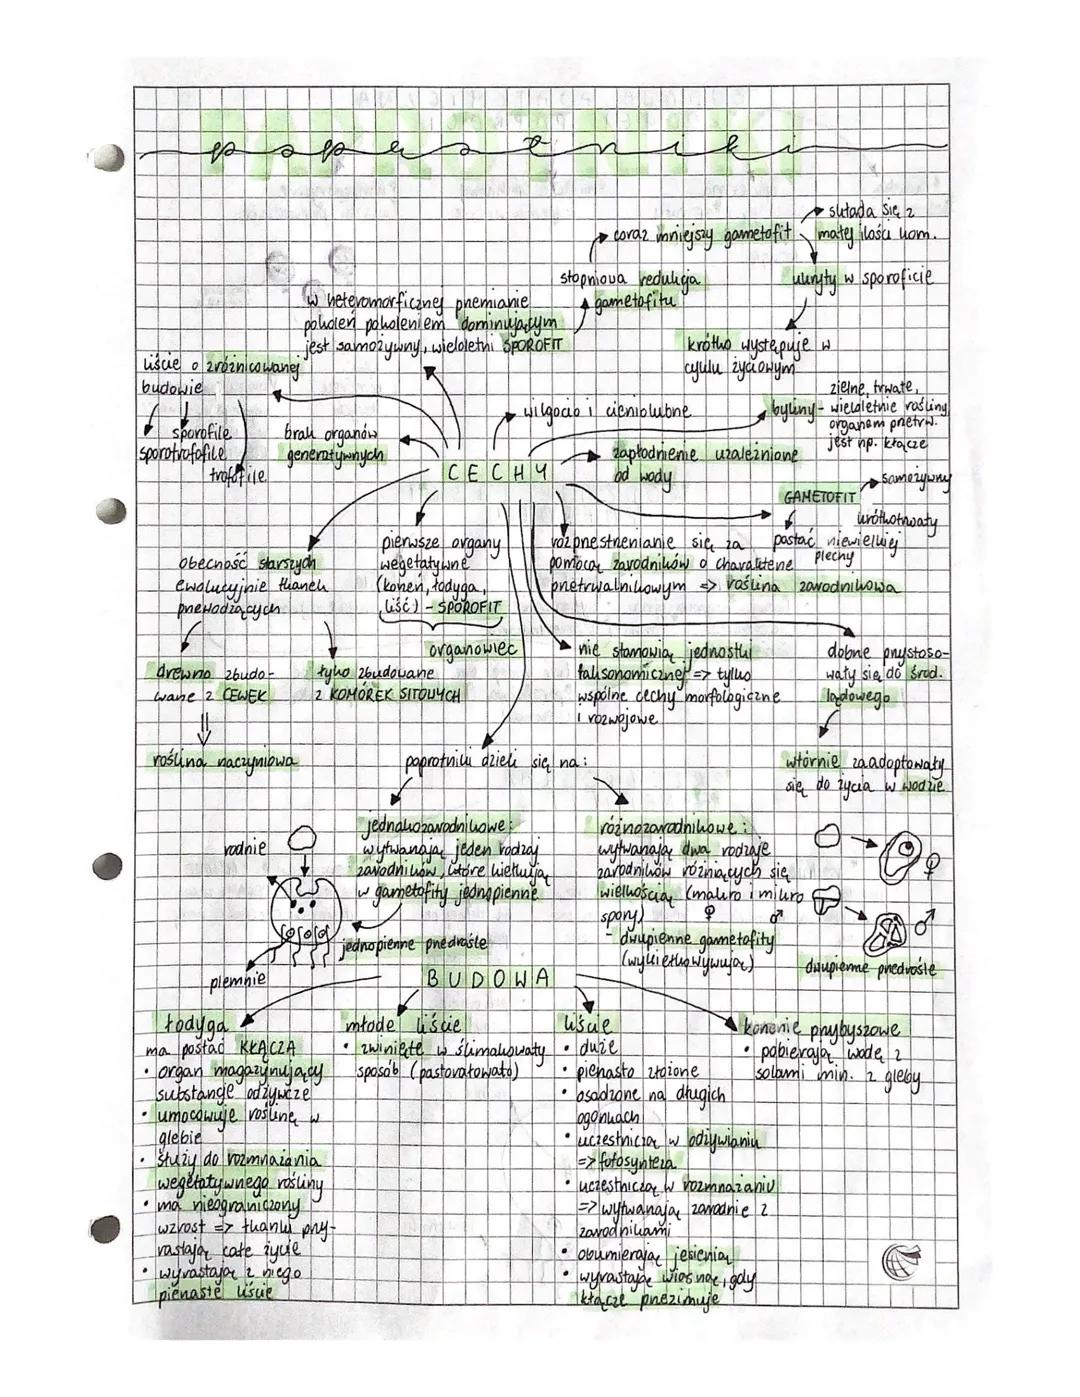 paprotniki
składa się z
coraz mniejszy gametofit
małej ilości kom.
stopniowa redukcja
gametofitu
ukryty w sporoficie
krótko występuje w
cyklu życiowym
w heteromorficznej przemianie
pokoleń pokoleniem dominującym
jest samożywny, wieloletni SPOROFIT
liście o zróżnicowanej
budowie
sporofile
sporotrofofile
trofofile
brak organów
generatywnych
wilgocio i cieniolubne
byliny - zielne, trwałe,
wieloletnie rośliny,
organem przetrw.
jest np. kłącze
CECHY
zapłodnienie uzależnione
od wody
GAMETOFIT
samożywny
krótkotrwały
postać niewielkiej
plechy
obecność starszych
ewolucyjnie tkanek
przewodzących
pierwsze organy
wegetatywne
(korzeń, łodyga,
liść) - SPOROFIT
organowiec
rozprzestrzenianie się za
pomocą zarodników o charakterze
przetrwalnikowym => roślina zarodnikowa
drewno zbudo-
wane z CEWEK
roślina naczyniowa
łyko zbudowane
z KOMÓREK SITOWYCH
nie stanowią jednostki
taksonomicznej => tylko
wspólne cechy morfologiczne
i rozwojowe
dobrze przystoso-
wały się do środ.
lądowego
wtórnie zaadoptowały
się do życia w wodzie
paprotniki dzieli się na:
jednakozarodnikowe:
wytwarzają jeden rodzaj
zarodników, które kiełkują
w gametofity jednopienne
rodnie
plemnie
jednopienne przedrośle
różnozarodnikowe:
wytwarzają dwa rodzaje
zarodników różniących się
wielkością (makro i mikro
spory) ♀ ♂
- dwupienne gametofity
(wykiełkowywują)
♀
♂
dwupienne przedrośle
BUDOWA
łodyga
ma postać KŁĄCZA
• organ magazynujący
substancje odżywcze
• umocowuje roślinę w
glebie
• służy do rozmnażania
wegetatywnego rośliny
• ma nieograniczony
wzrost => tkanki przy-
rastają całe życie
• wyrastają z niego
pierzaste liście
młode liście
• zwinięte w ślimakowaty
sposób (pastorałowato)
liście
• duże
• pierzasto złożone
• osadzone na długich
ogonkach
• uczestniczą w odżywianiu
=> fotosynteza
• uczestniczą w rozmnażaniu
=> wytwarzają zarodnie z
zarodnikami
• obumierają jesienią
• wyrastają wiosną, gdy
kłącze przezimuje
korzenie przybyszowe
• pobierają wodę z
solami min. z gleby